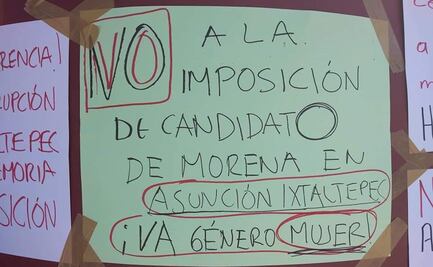 NO A LA
IMPOSICIÓN
DE CANDIDATO
DE MORENA EN
ASUNCIÓN IXTALTEPEC
¡VA GÉNERO MUJER!
RENCIA!
UPCIÓN
LTEPEC
MORIA
SICIÓN